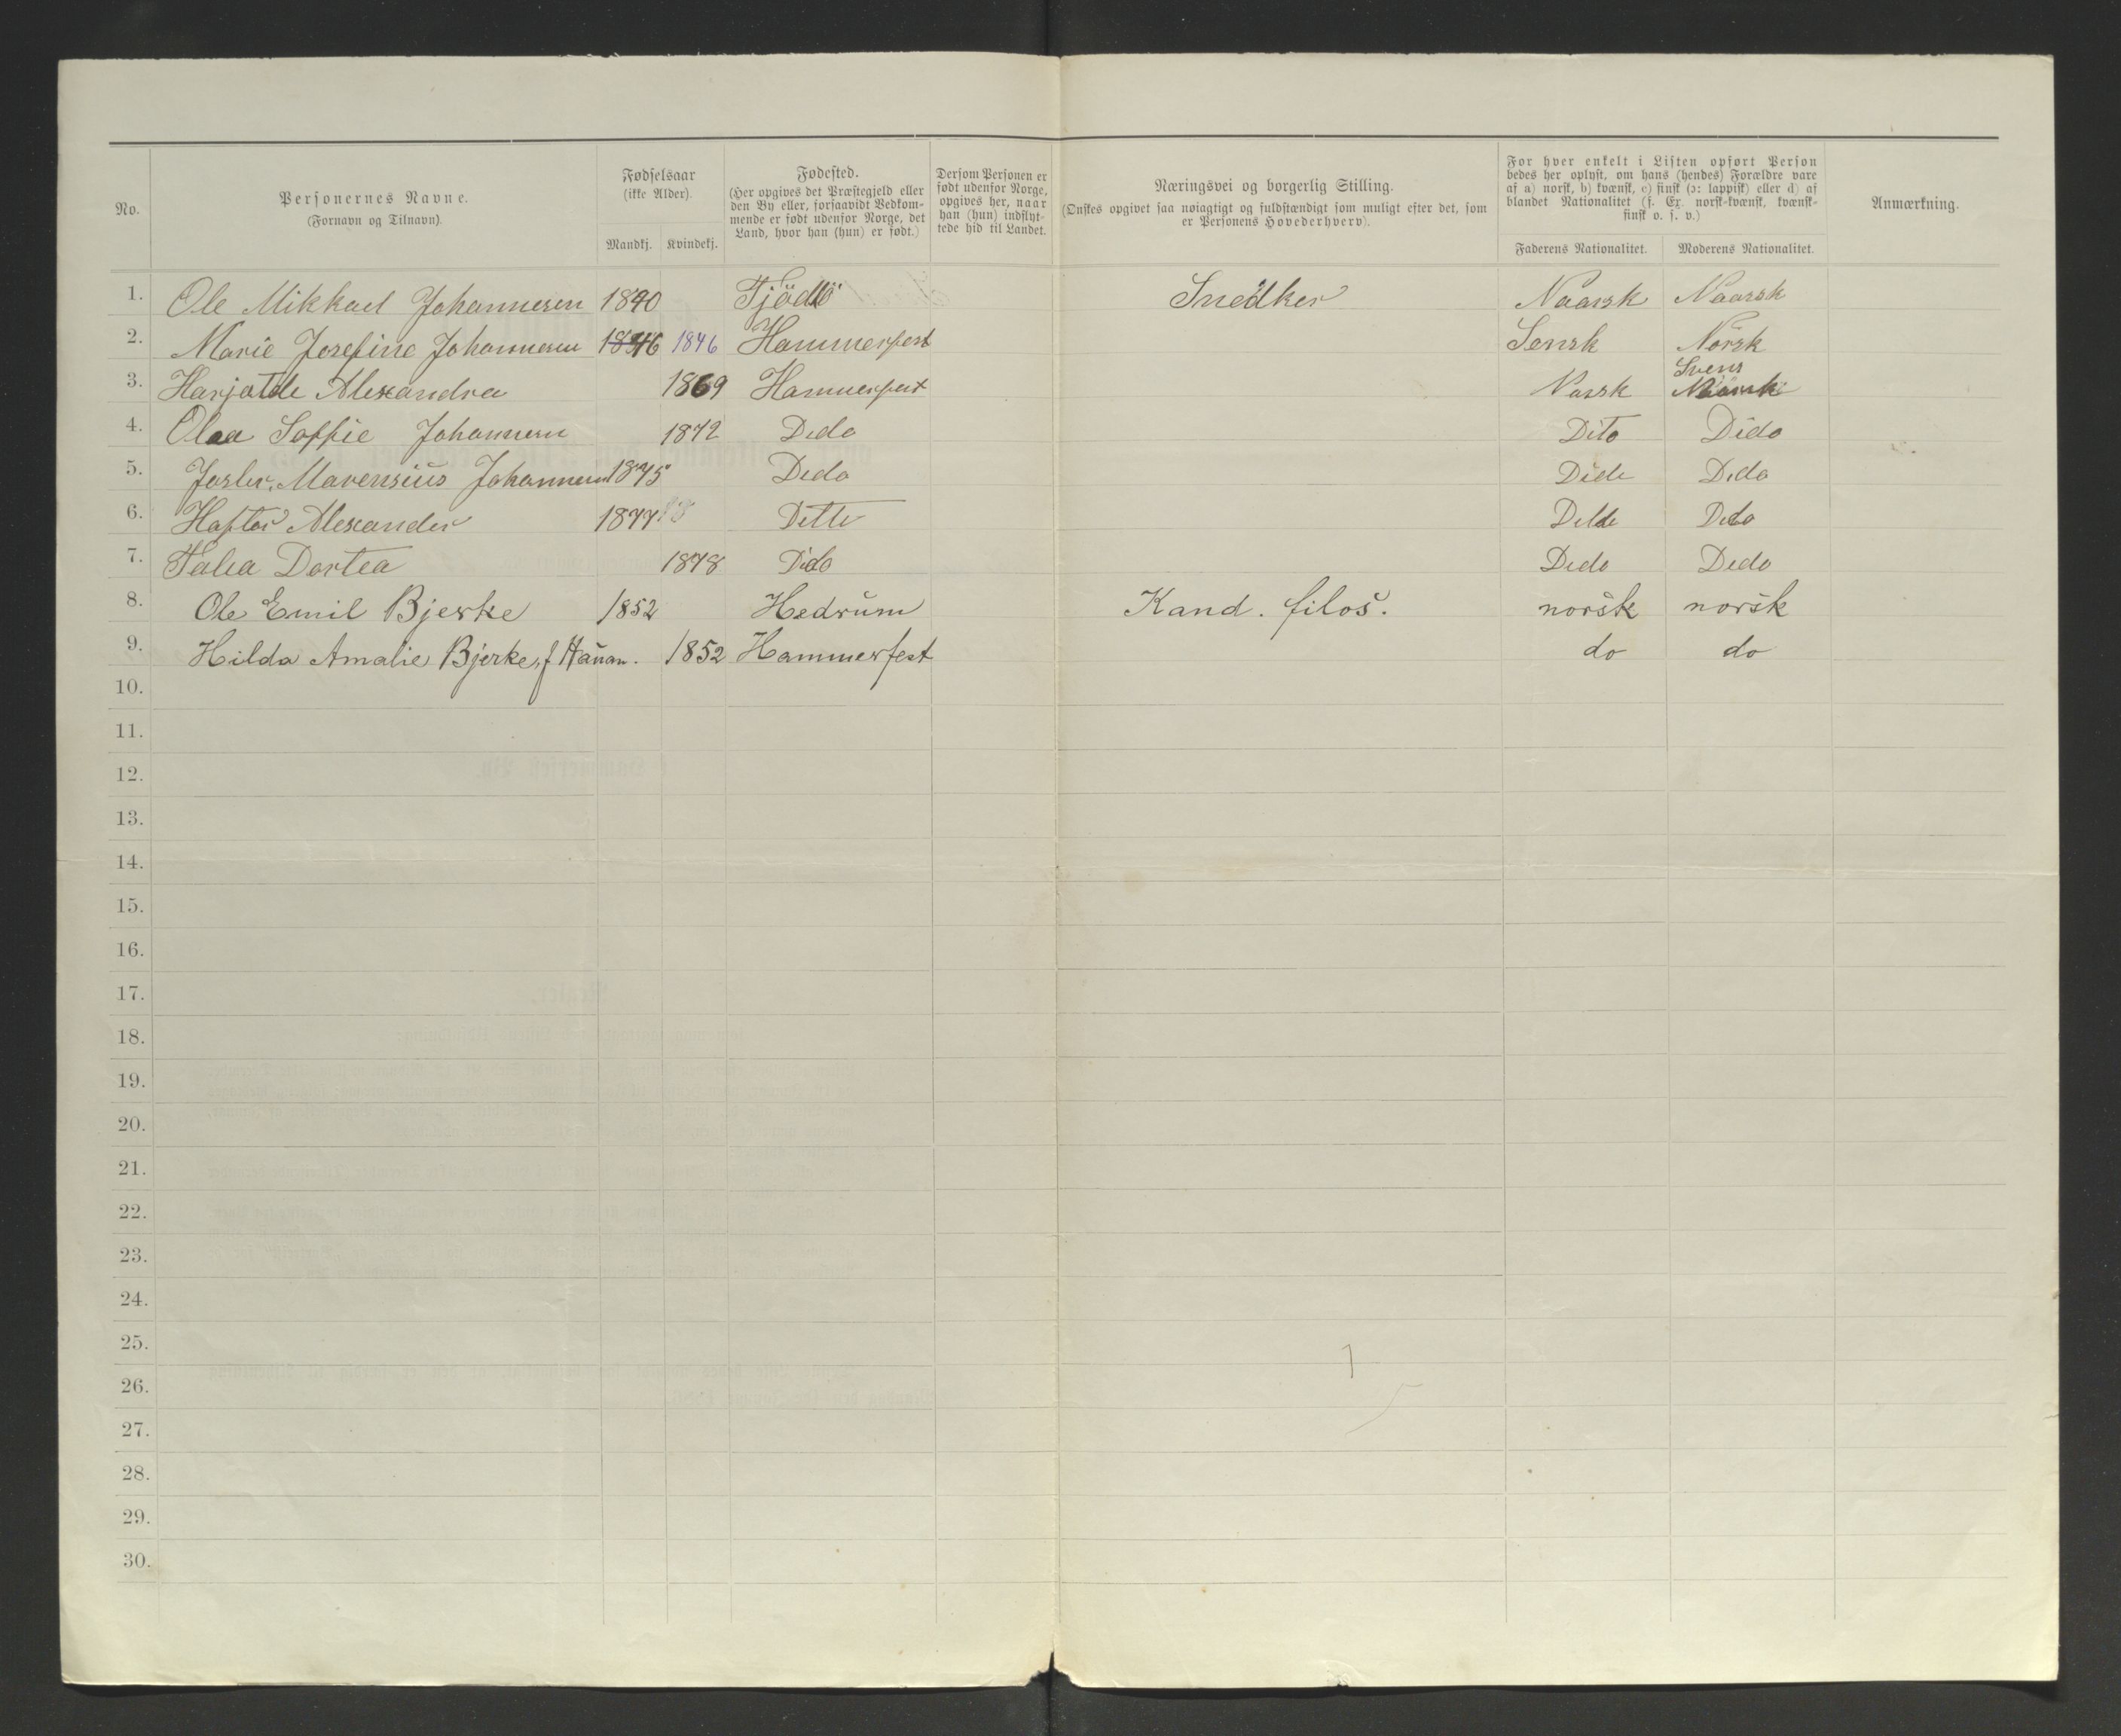 No.
Personernes Navne.
(Fornavn og Tilnavn).
Fødselsaar
(ikke Alder).
Mandkj. Kvindekj.
Fødested.
(Her opgives det Præstegjeld eller
den By eller, forsaavidt Vedkom-
mende er født udenfor Norge, det
Land, hvor han (hun) er født.)
Dersom Personen er
født udenfor Norge,
opgives her, naar
han (hun) indflyt-
tede hid til Landet.
Næringsvei og borgerlig Stilling.
(Ønskes opgivet saa nøiagtigt og fuldstændigt som muligt efter det, som
er Personens Hovederhverv).
For hver enkelt i Listen opført Person
bedes her oplyst, om hans (hendes) Forældre vare
af a) norsk, b) kvænsk, c) finsk (ɔ: lappisk) eller d) af
blandet Nationalitet (f. Ex. norsk-kvænsk, kvænsk-
finsk o. s. v.)
Faderens Nationalitet. Moderens Nationalitet.
Anmærkning.
1. Ole Mikkael Johannesen 1840 Snedker Naarsk Naarsk
2. Marie Josefine Johannesen 1846 1846 Hammerfest Sensk Norsk
3. Harjalde Alexandra 1869 Hammerfest Naask Svens
4. Olaa Soffie Johannesen 1872 Dido Dito Dido
5. Marensius Johannesen 1875 Dido Dido Dido
6. Haftor Alexander 1877 Ditto Dido
7. Talea Dortea 1878 Dido Dido Dido
8. Ole Emil Bjerke 1852 Hedrum Kand. filos. norsk norsk
9. Hilda Amalie Bjerke, f Hauan. 1852 Hammerfest do do
10.
11.
12.
13.
14.
15.
16.
17.
18.
19.
20.
21.
22.
23.
24.
25.
26.
27.
28.
29.
30.